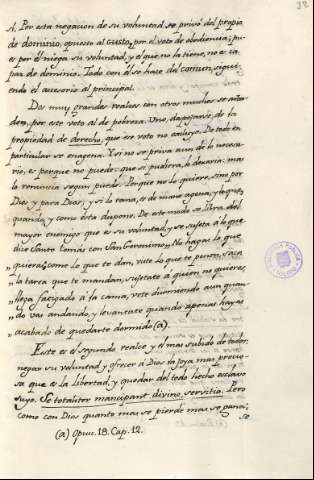 si. Por esta negacion de su voluntad se privó del propio
de dominio, opuesto al custo, por el voto de obediencia; pu-
es por él niega su voluntad, y el que no la tiene, no es ca-
paz de dominio. Todo con él se hace del comun, sigui-
endo el accesorio al principal.
Dos muy grandes realces con otros muchos se aña-
den, por este voto al de pobreza. Uno, despojarse de la
propiedad de derecho, que ese voto no excluyo. De todo en
particular se enagena. Y si no se priva aun de lo necesa-
rio, es porque no puede: que si pudiera, lo dexaria: mas
la renuncia segun puede. Porque no lo quiere, sino por
Dios y para Dios; y si lo toma, es de mano agena, y lo que,
quando, y como ésta dispone. De este modo se libra del
mayor enemigo que es su voluntad, y se sujeta á lo que
dice Santo Tomás con San Geronimo: No hagas lo que
„ quieras; come lo que te dan, viste lo que te ponen, saca
„ la tarea que te mandan, sujetate á quien no quieres,
„ llega fatigado á la cama, vete durmiendo aun quan-
„ do vas andando, y levantate quando apenas hayas
„ acabado de quedarte dormido (a).
Este es el segundo realce y el mas subido de todos:
negar su voluntad y ofrecer á Dios la joya mas precio-
sa que es la libertad, y quedar del todo hecho esclavo
suyo. Se totaliter mancipant divino servitio. Pero
como con Dios quanto mas se pierde mas se gana;
se
(a) Opus. 18. Cap. 12.